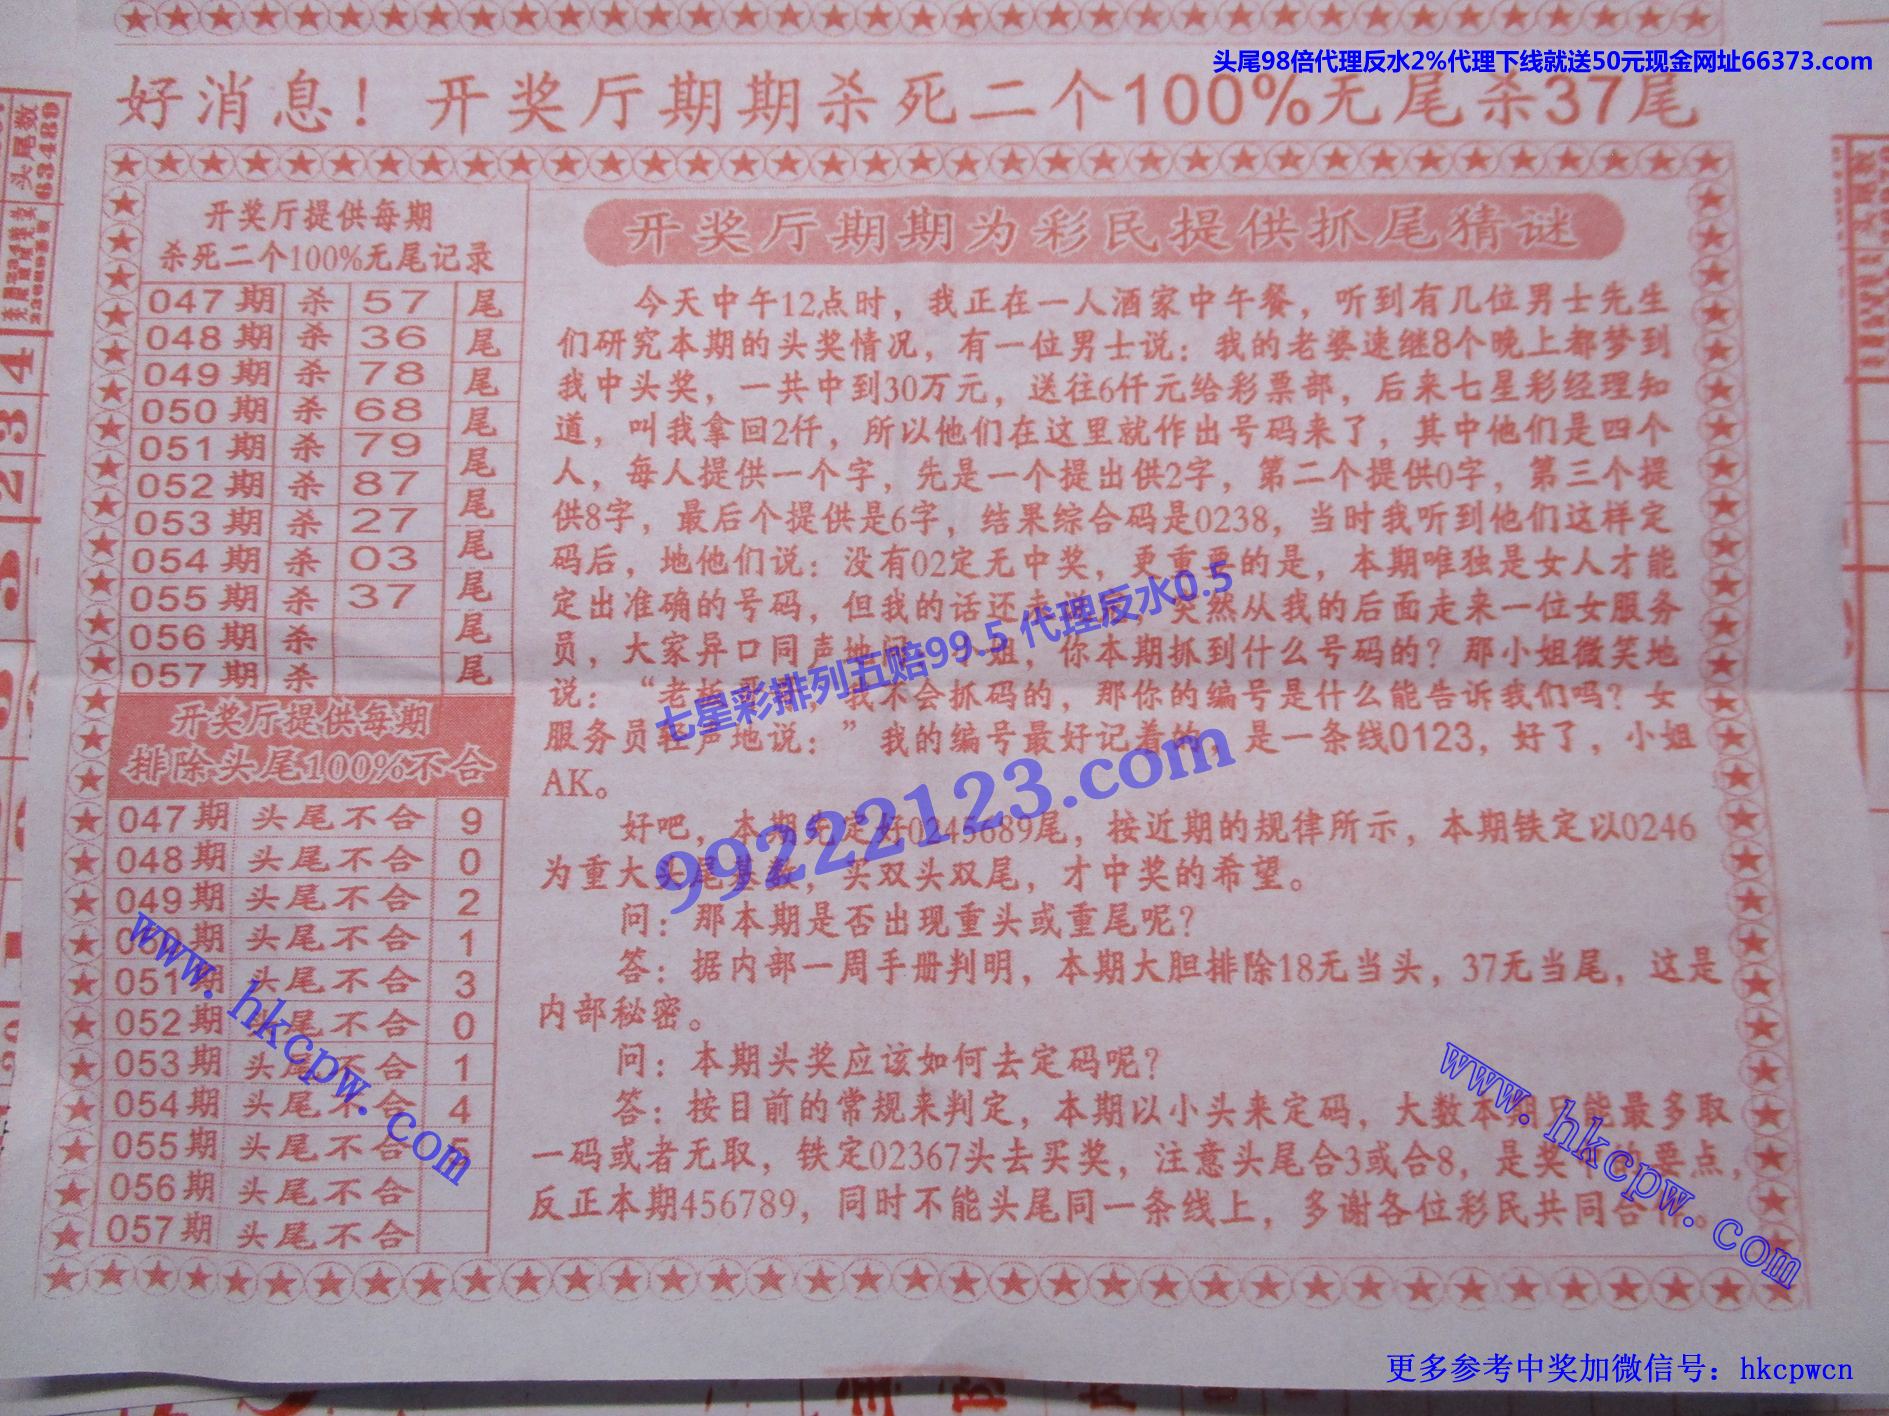 头尾98倍代理反水2%代理下线就送50元现金网址66373.com
好消息！开奖厅期期杀死二个100%无尾杀37尾
开奖厅提供每期
杀死二个100%无尾记录
047期 杀 57 尾
048期 杀 36 尾
049期 杀 78 尾
050期 杀 68 尾
051期 杀 79 尾
052期 杀 87 尾
053期 杀 27 尾
054期 杀 03 尾
055期 杀 37 尾
056期 杀 尾
057期 杀 尾
开奖厅提供每期
排除头尾100%不合
047期 头尾不合 9
048期 头尾不合 0
049期 头尾不合 2
050期 头尾不合 1
051期 头尾不合 3
052期 头尾不合 0
053期 头尾不合 1
054期 头尾不合 4
055期 头尾不合 5
056期 头尾不合
057期 头尾不合
开奖厅期期为彩民提供抓尾猜谜
今天中午12点时，我正在一人酒家中午餐，听到有几位男士先生
们研究本期的头奖情况，有一位男士说：我的老婆速继8个晚上都梦到
我中头奖，一共中到30万元，送往6仟元给彩票部，后来七星彩经理知
道，叫我拿回2仟，所以他们在这里就作出号码来了，其中他们是四个
人，每人提供一个字，先是一个提出供2字，第二个提供0字，第三个提
供8字，最后个提供是6字，结果综合码是0238，当时我听到他们这样定
码后，地他们说：没有02定无中奖，更重要的是，本期唯独是女人才能
定出准确的号码，但我的话还未 ，突然从我的后面走来一位女服务
员，大家异口同声地问：小姐，你本期抓到什么号码的？那小姐微笑地
说：“老 ，我不会抓码的，那你的编号是什么能告诉我们吗？女
服务员轻声地说：”我的编号最好记着的，是一条线0123，好了，小姐
AK。
好吧，本期先定好0245689尾，按近期的规律所示，本期铁定以0246
为重大头尾基数，买双头双尾，才中奖的希望。
问：那本期是否出现重头或重尾呢？
答：据内部一周手册判明，本期大胆排除18无当头，37无当尾，这是
内部秘密。
问：本期头奖应该如何去定码呢？
答：按目前的常规来判定，本期以小头来定码，大数本期只能最多取
一码或者无取，铁定02367头去买奖，注意头尾合3或合8，是奖 的要点，
反正本期456789，同时不能头尾同一条线上，多谢各位彩民共同合作。
七星彩排列五赔99.5 代理反水0.5
99222123.com
www.hkcpw.com
www.hkcpw.com
更多参考中奖加微信号：hkcpwcn